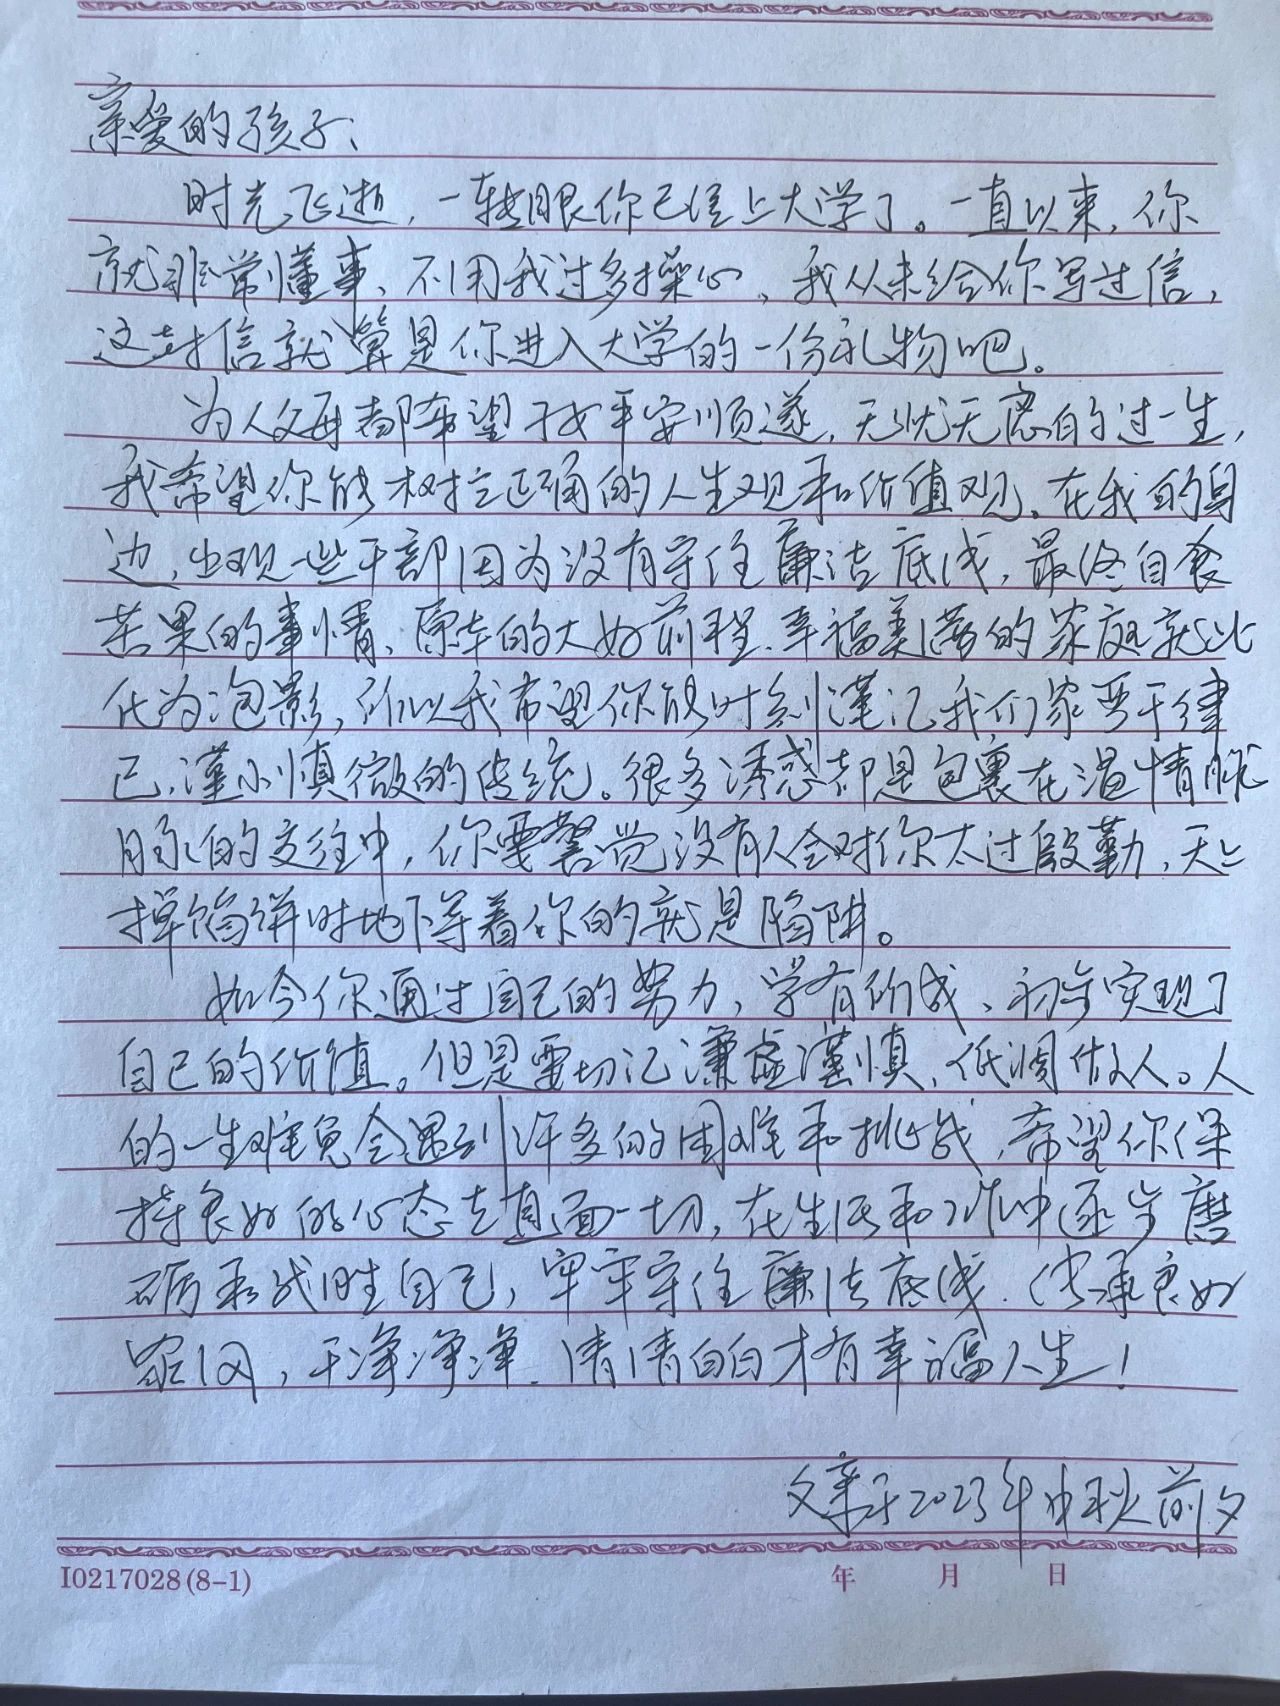 亲爱的孩子、
时光飞逝，一转眼你已经上大学了。一直以来，你
就非常懂事、不用我过多操心。我从未给你写过信，
这封信就算是你进入大学的一份礼物吧。
为人父母都希望子女平安顺遂，无忧无虑的过一生，
我希望你能树立正确的人生观和价值观。在我的身
边，出现一些干部因为没有守住廉洁底线，最终自食
苦果的事情、原本的大好前程、幸福美满的家庭就此
化为泡影，所以我希望你能时刻谨记我们家严于律
己，谨小慎微的传统。很多诱惑都是包裹在温情脉
脉的交往中，你要警觉没有人会对你太过殷勤，天上
掉馅饼时地下等着你的就是陷阱。
如今你通过自己的努力，学有所成、初步实现了
自己的价值。但是要切记谦虚谨慎、低调做人。人
的一生难免会遇到许多的困难和挑战，希望你保
持良好的心态去直面一切，在生活和工作中逐步磨
砺和战胜自己，牢牢守住廉洁底线、传承良好
家风，干净净净、清清白白才有幸福人生！
父亲于2023年中秋前夕
I0217028(8-1)
年 月 日